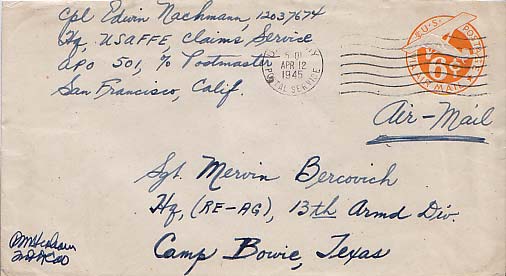 Cpl Edwin Nachmann, 12037674
Hq, USAFFE, Claims Service
APO 501, c/o Postmaster
San Francisco, Calif.
APR 12
1945
POSTAL SERVICE
U.S. POSTAGE
6¢
VIA AIR MAIL
Air-Mail
Sgt. Mervin Bercovich
Hq, (RE-AG), 13th Armd Div.
Camp Bowie, Texas